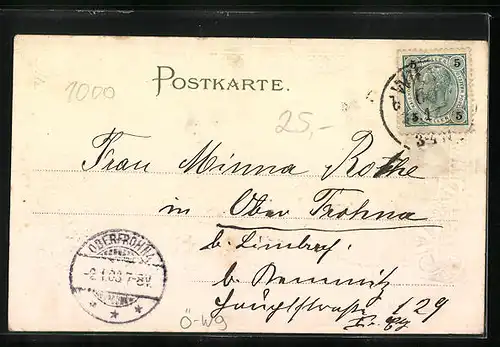 POSTKARTE.
1000
25,-
5 5
5 5
3-4 N
Frau Minna Rothe
in Ober Frohna
b. Limbach
b. Chemnitz
Hauptstrasse 129
OBERFROHNA
-2.1.03 7-8V.
Ö-W9